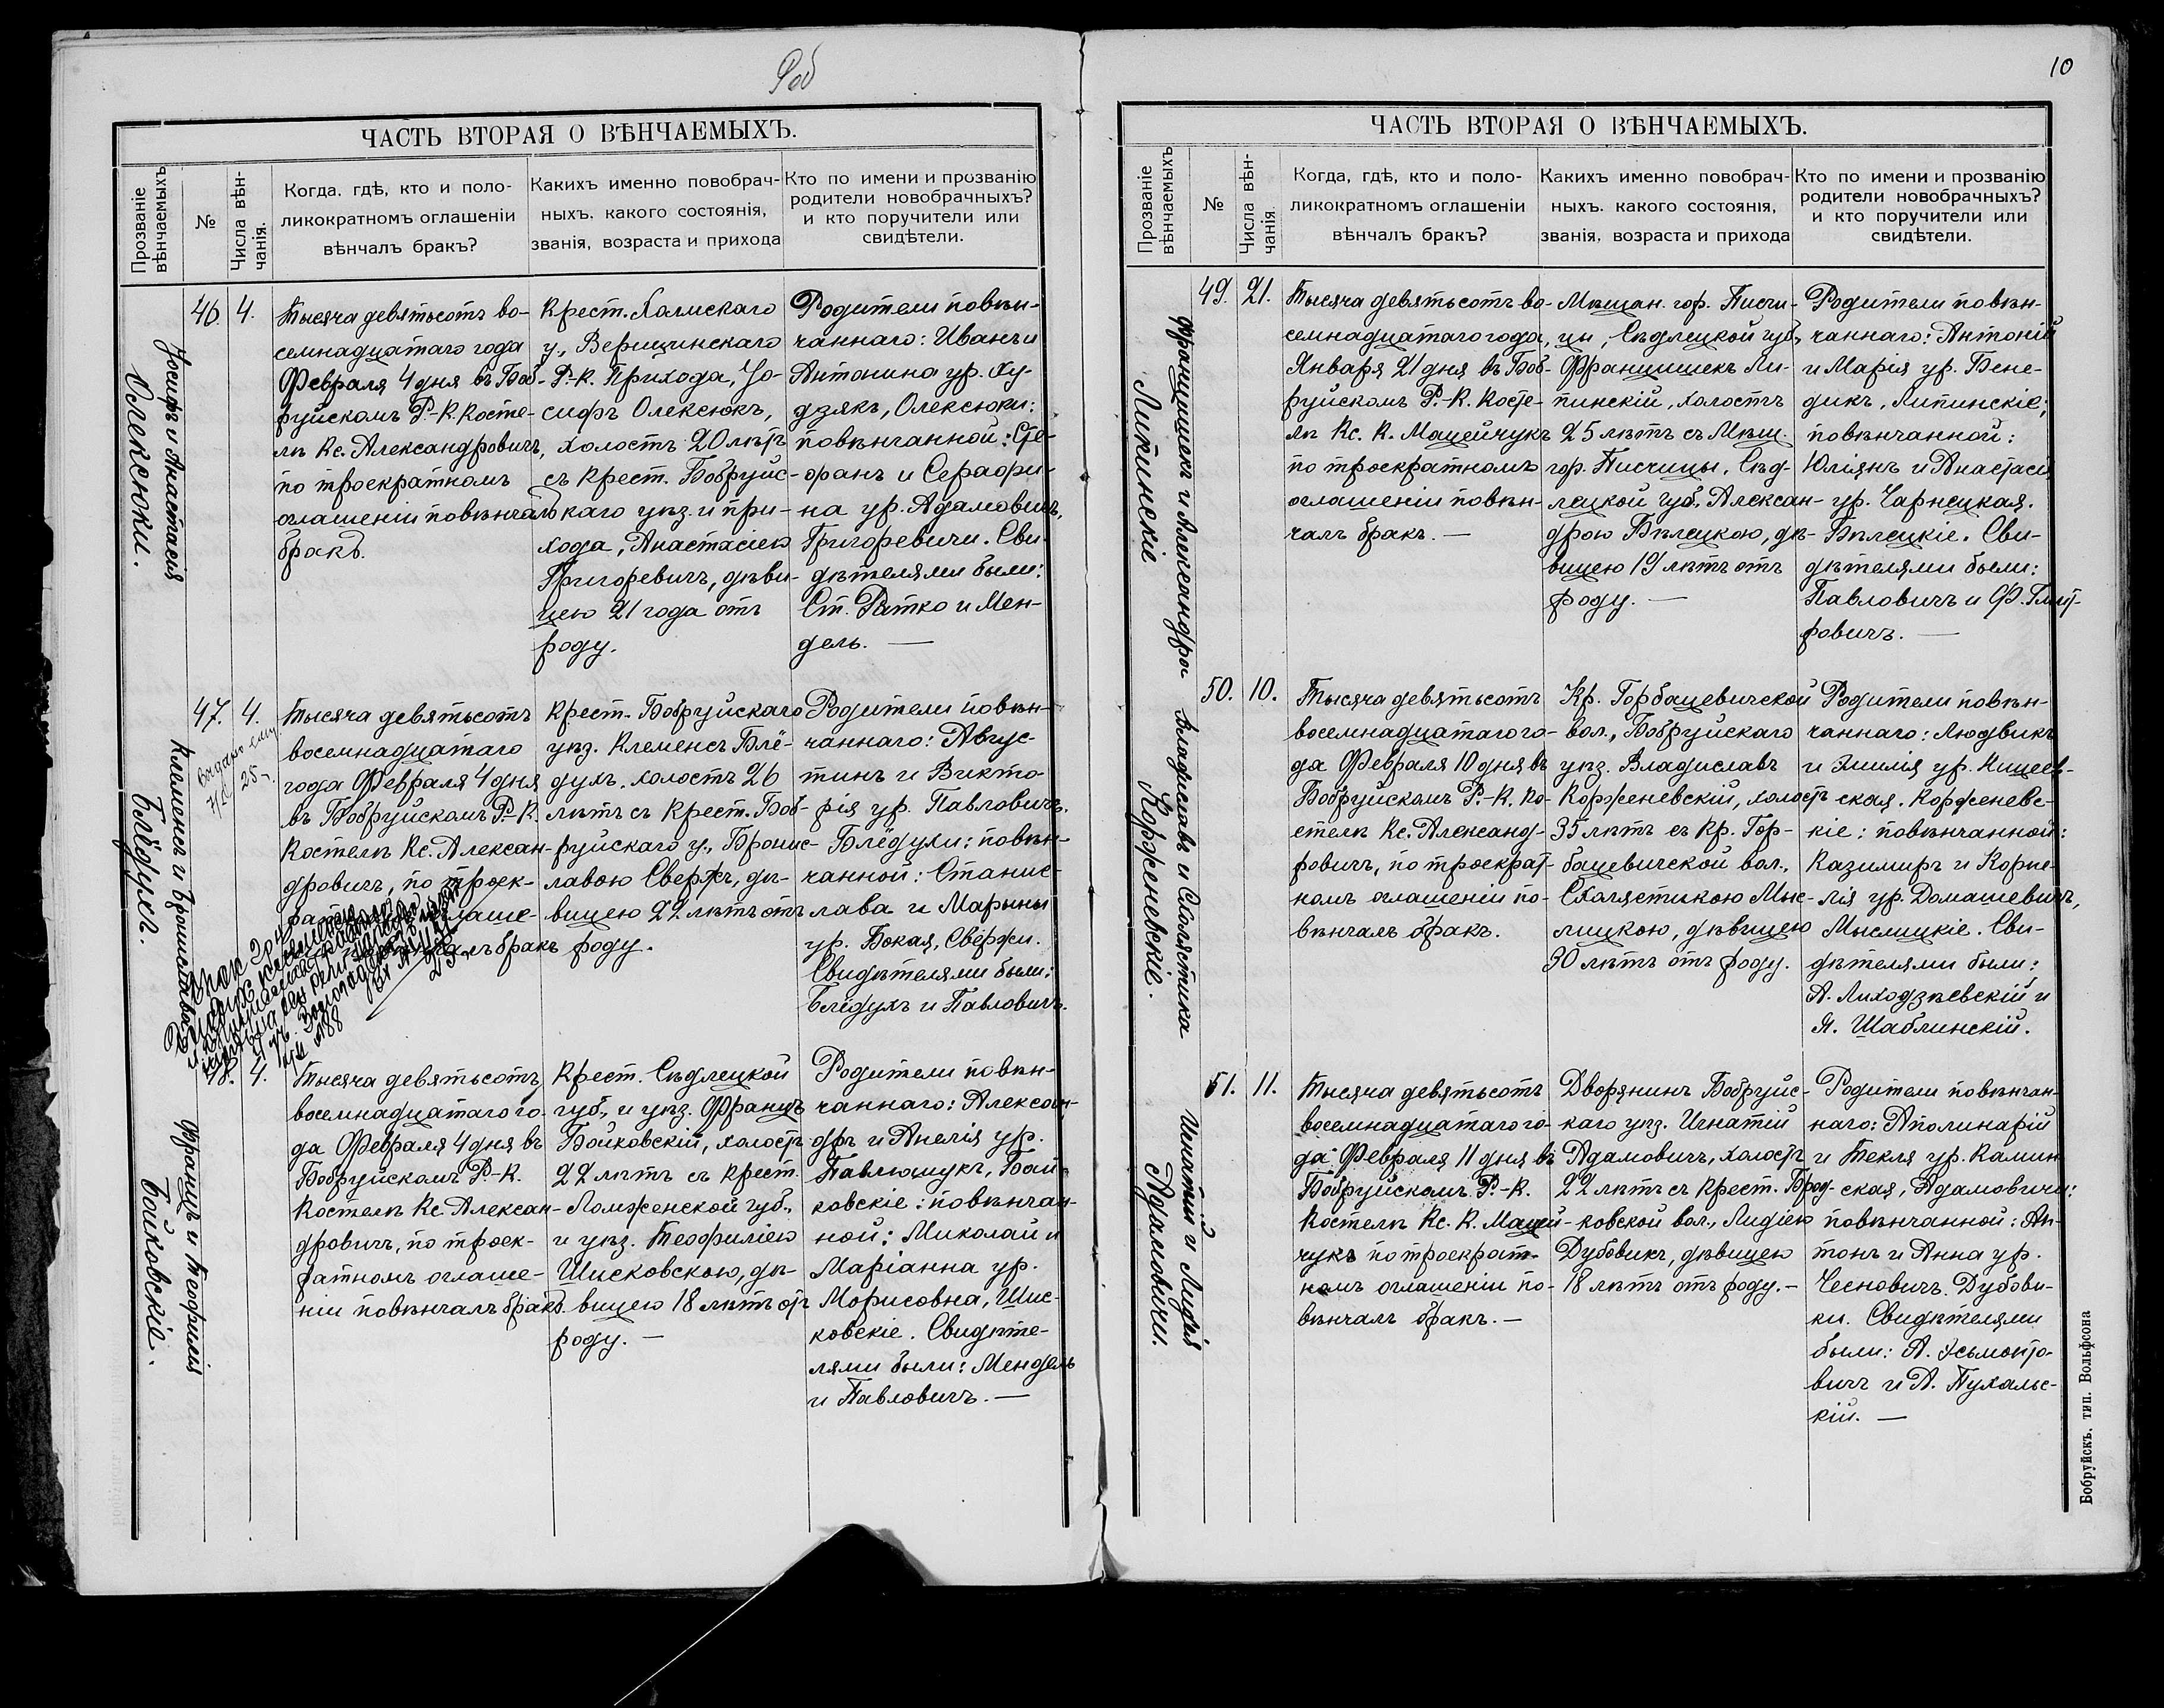 9об
ЧАСТЬ ВТОРАЯ О ВѢНЧАЕМЫХЪ.
Прозваніе вѣнчаемыхъ
№
Числа вѣнчанія.
Когда, гдѣ, кто и поло-
ликократномъ оглашеніи
вѣнчалъ бракъ?
Какихъ именно повобрач-
ныхъ. какого состоянія,
званія, возраста и прихода
Кто по имени и прозванію
родители новобрачныхъ?
и кто поручители или
свидѣтели.
Іосифъ и Анастасія
Олексюки.
46.
4.
Тысяча девятьсотъ во-
семнадцатаго года
Февраля 4 дня въ Боб-
руйскомъ Р.-К. Косте-
лѣ Кс. Александровичъ,
по троекратномъ
оглашеніи повѣнчалъ
бракъ.
Крест. Холмскаго
у., Верещинскаго
Р.-К. Прихода, Іо-
сифъ Олексюкъ,
холостъ 20 лѣтъ
съ Крест. Бобруйс-
каго уѣз. и при-
хода, Анастасіею
Григоревичъ, дѣви-
цею 21 года отъ
роду.
Родители повѣн-
чаннаго: Иванъ и
Антонина ур. Ку-
дзякъ, Олексюки:
повѣнчанной: Сте-
фанъ и Серафи-
на ур. Адамовичъ,
Григоревичи. Сви-
дѣтелями были:
Ст. Ратко и Мен-
дель. —
Клеменсъ и Брониславова
Блёдухи.
47.
4.
25
Тысяча девятьсотъ
восемнадцатаго
года Февраля 4 дня
въ Бобруйскомъ Р.-К.
Костелѣ Кс. Алексан-
дровичъ, по троек-
ратномъ оглаше-
чалъ бракъ
Крест. Бобруйскаго
уѣз. Клеменсъ Блё-
духъ, холостъ 26
лѣтъ съ Крест. Боб-
руйскаго у., Бронис-
лавою Свержъ, дѣ-
вицею 22 лѣтъ отъ
роду.
Родители повѣн-
чаннаго: Авгус-
тинъ и Викто-
рія ур. Павловичъ.
Блёдухи: повѣн-
чанной: Станис-
лава и Марыны
ур. Бокая, Свёржи.
Свидѣтелями были:
Блёдухъ и Павловичъ.
№ 88
Францъ и Теофилія
Бойковскіе.
48.
4.
Тысяча девятьсотъ
восемнадцатаго го-
да Февраля 4 дня въ
Бобруйскомъ Р.-К.
Костелѣ Кс. Алексан-
дровичъ, по троек-
ратномъ оглаше-
ніи повѣнчалъ бракъ.
Крест. Сѣдлецкой
губ., и уѣз. Францъ
Бойковскій, холостъ
22 лѣтъ съ Крест.
Ломженской губ.,
и уѣз. Теофиліею
Шисковскою, дѣ-
вицею 18 лѣтъ отъ
роду. —
Родители повѣн-
чаннаго: Алексан-
дръ и Анелія ур.
Павлюшукъ, Бой-
ковскіе: повѣнчан-
ной: Миколай и
Маріанна ур.
Морисовна, Шис-
ковскіе. Свидѣте-
лями были: Мендель
и Павловичъ. —
10
ЧАСТЬ ВТОРАЯ О ВѢНЧАЕМЫХЪ.
Прозваніе вѣнчаемыхъ
№
Числа вѣнчанія.
Когда, гдѣ, кто и поло-
ликократномъ оглашеніи
вѣнчалъ бракъ?
Какихъ именно повобрач-
ныхъ. какого состоянія,
званія, возраста и прихода
Кто по имени и прозванію
родители новобрачныхъ?
и кто поручители или
свидѣтели.
Францишекъ и Александра
Липинскіе
49.
21.
Тысяча девятьсотъ во-
семнадцатаго года,
Января 21 дня въ Боб-
руйскомъ Р.-К. Косте-
лѣ Кс. К. Мацейчукъ
по троекратномъ
оглашеніи повѣн-
чалъ бракъ. —
Мѣщан. гор. Писчи-
цы, Сѣдлецкой губ.,
Францишекъ Ли-
пинскій, холостъ
25 лѣтъ съ Мѣщ.
гор. Писчицы, Сѣд-
лецкой губ., Алексан-
дрою Бѣлецкою, дѣ-
вицею 19 лѣтъ отъ
роду. —
Родители повѣн-
чаннаго: Антоній
и Марія ур. Бене-
дикъ, Липинскіе;
повѣнчанной:
Юліянъ и Анастасія
ур. Чарнецкая.
Бѣлецкіе. Сви-
дѣтелями были:
Павловичъ и Ф. Гмит-
ровичъ. —
Владиславъ и Схолястика
Корженевскіе.
50.
10.
Тысяча девятьсотъ
восемнадцатаго го-
да Февраля 10 дня въ
Бобруйскомъ Р.-К. Ко-
стелѣ Кс. Александ-
ровичъ, по троекрат-
номъ оглашеніи по-
вѣнчалъ бракъ.
Кр. Горбацевичской
вол., Бобруйскаго
уѣз. Владиславъ
Корженевскій, холостъ
35 лѣтъ съ Кр. Гор-
бацевичской вол.,
Схолястикою Мыс-
лицкою, дѣвицею
30 лѣтъ отъ роду.
Родители повѣн-
чаннаго: Людвикъ
и Эмилія ур. Кицеев-
ская. Корженевс-
кіе: повѣнчанной:
Казимиръ и Корне-
лія ур. Домашевичъ,
Мыслицкіе. Сви-
дѣтелями были:
А. Лиходзѣевскій и
Я. Шаблинскій.
Игнатій и Лидія
Адамовичи.
51.
11.
Тысяча девятьсотъ
восемнадцатаго го-
да Февраля 11 дня въ
Бобруйскомъ Р.-К.
Костелѣ Кс. К. Мацей-
чукъ по троекрат-
номъ оглашеніи по-
вѣнчалъ бракъ. —
Дворянинъ Бобруйс-
каго уѣз. Игнатій
Адамовичъ, холостъ
22 лѣтъ съ Крест. Брод-
ковской вол., Лидіею
Дубовикъ, дѣвицею
18 лѣтъ отъ роду. —
Родители повѣнчан-
наго: Аполинарій
и Текля ур. Камин-
ская, Адамовичи:
повѣнчанной: Ан-
тонъ и Анна ур.
Чесновичъ. Дубови-
ки. Свидѣтелями
были: А.
вичъ и А. Пухальс-
кій. —
Бобруйскъ, тип. Вольфсона